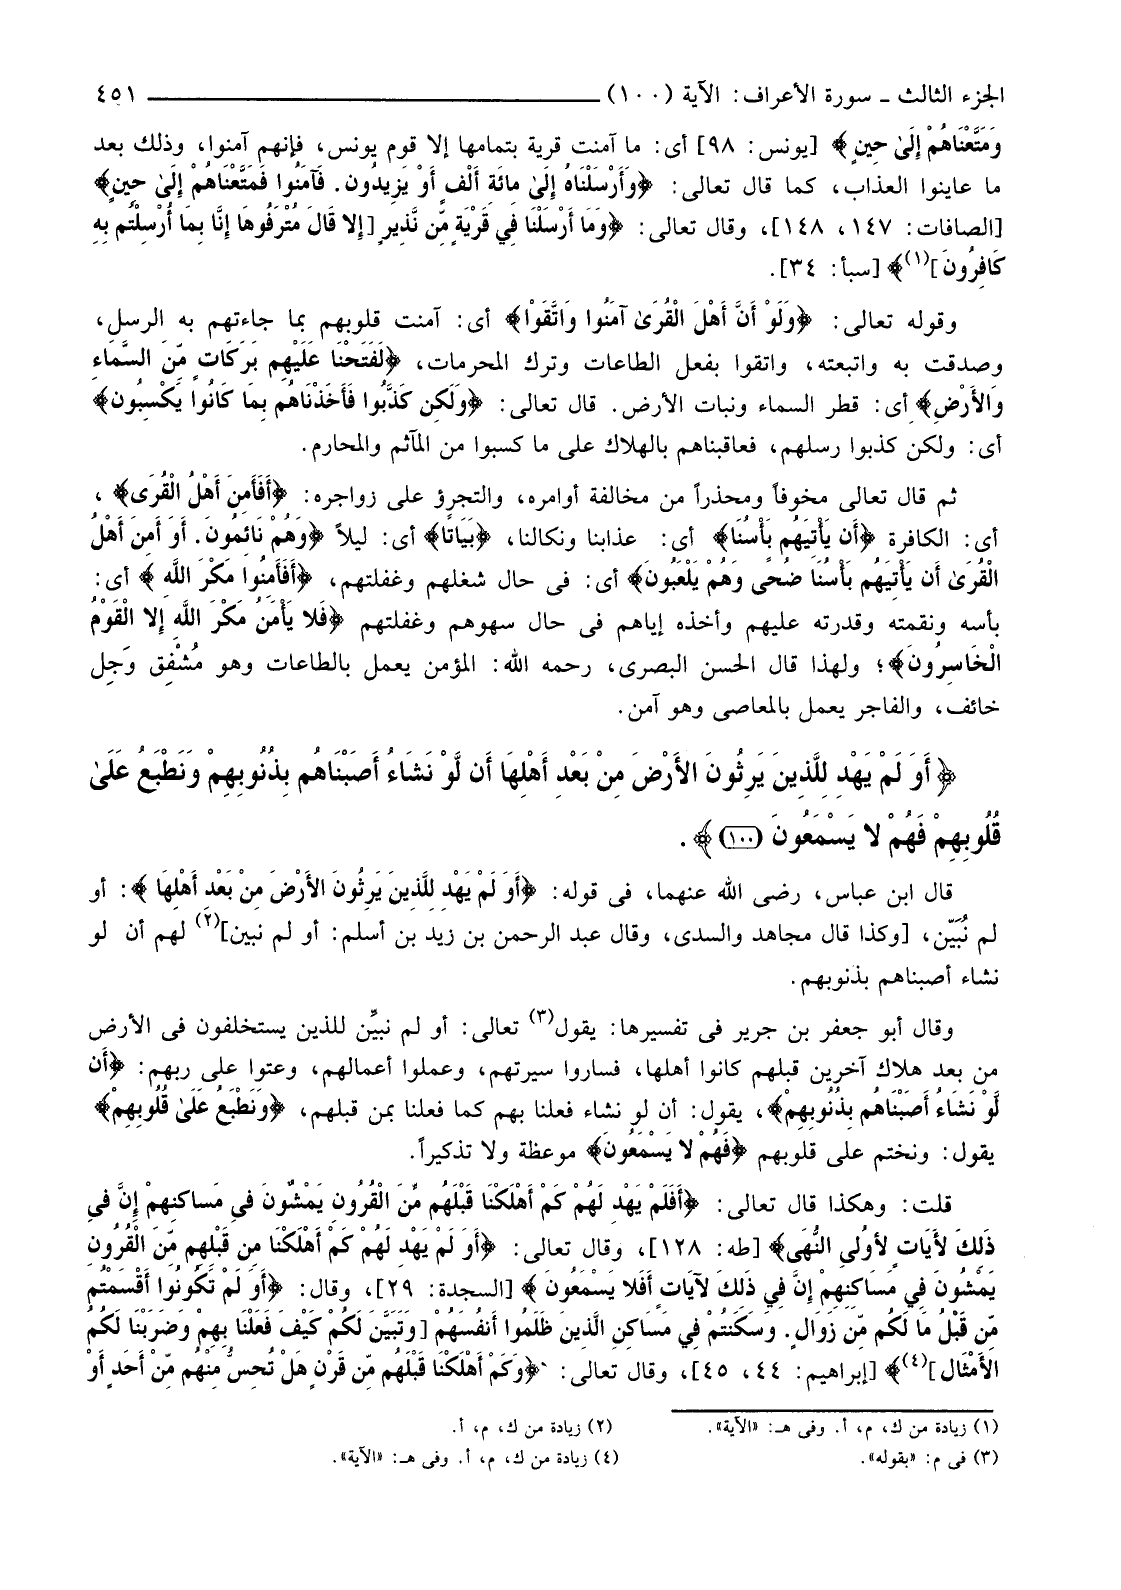 الجزء الثالث ـ سورة الأعراف: الآية (١٠٠) ــــــــــــــــــــ ٤٥١
وَمَتَّعْنَاهُمْ إِلَىٰ حِينٍ﴾ [يونس: ٩٨] أى: ما آمنت قرية بتمامها إلا قوم يونس، فإنهم آمنوا، وذلك بعد
ما عاينوا العذاب، كما قال تعالى: ﴿وَأَرْسَلْنَاهُ إِلَىٰ مِائَةِ أَلْفٍ أَوْ يَزِيدُون. فَآمَنُوا فَمَتَّعْنَاهُمْ إِلَىٰ حِينٍ﴾
[الصافات: ١٤٧، ١٤٨]، وقال تعالى: ﴿وَمَا أَرْسَلْنَا فِي قَرْيَةٍ مِّن نَّذِيرٍ [إِلا قَالَ مُتْرَفُوهَا إِنَّا بِمَا أُرْسِلْتُم بِهِ
كَافِرُونَ](١)﴾ [سبأ: ٣٤].
وقوله تعالى: ﴿وَلَوْ أَنَّ أَهْلَ الْقُرَىٰ آمَنُوا وَاتَّقَوْا﴾ أى: آمنت قلوبهم بما جاءتهم به الرسل،
وصدقت به واتبعته، واتقوا بفعل الطاعات وترك المحرمات، ﴿لَفَتَحْنَا عَلَيْهِم بَرَكَاتٍ مِّنَ السَّمَاءِ
وَالأَرْضِ﴾ أى: قطر السماء ونبات الأرض. قال تعالى: ﴿وَلَكِن كَذَّبُوا فَأَخَذْنَاهُم بِمَا كَانُوا يَكْسِبُون﴾
أى: ولكن كذبوا رسلهم، فعاقبناهم بالهلاك على ما كسبوا من المآثم والمحارم.
ثم قال تعالى مخوفاً ومحذراً من مخالفة أوامره، والتجرؤ على زواجره: ﴿أَفَأَمِنَ أَهْلُ الْقُرَى﴾ ،
أى: الكافرة ﴿أَن يَأْتِيَهُم بَأْسُنَا﴾ أى: عذابنا ونكالنا، ﴿بَيَاتًا﴾ أى: ليلاً ﴿وَهُمْ نَائِمُونَ. أَوَ أَمِنَ أَهْلُ
الْقُرَىٰ أَن يَأْتِيَهُم بَأْسُنَا ضُحًى وَهُمْ يَلْعَبُونَ﴾ أى: فى حال شغلهم وغفلتهم، ﴿أَفَأَمِنُوا مَكْرَ اللَّهِ ﴾ أى:
بأسه ونقمته وقدرته عليهم وأخذه إياهم فى حال سهوهم وغفلتهم ﴿فَلا يَأْمَنُ مَكْرَ اللَّهِ إِلا الْقَوْمُ
الْخَاسِرُونَ﴾؛ ولهذا قال الحسن البصرى، رحمه الله: المؤمن يعمل بالطاعات وهو مُشْفِق وَجِل
خائف، والفاجر يعمل بالمعاصى وهو آمن.
﴿أَوَ لَمْ يَهْدِ لِلَّذِينَ يَرِثُونَ الأَرْضَ مِنْ بَعْدِ أَهْلِهَا أَن لَّوْ نَشَاءُ أَصَبْنَاهُم بِذُنُوبِهِمْ وَنَطْبَعُ عَلَىٰ
قُلُوبِهِمْ فَهُمْ لا يَسْمَعُونَ (١٠٠)﴾ .
قال ابن عباس، رضى الله عنهما، فى قوله: ﴿أَوَ لَمْ يَهْدِ لِلَّذِينَ يَرِثُونَ الأَرْضَ مِنْ بَعْدِ أَهْلِهَا ﴾: أو
لم نُبَيِّن، [وكذا قال مجاهد والسدى، وقال عبد الرحمن بن زيد بن أسلم: أو لم نبين](٢) لهم أن لو
نشاء أصبناهم بذنوبهم.
وقال أبو جعفر بن جرير فى تفسيرها: يقول(٣) تعالى: أو لم نبيِّن للذين يستخلفون فى الأرض
من بعد هلاك آخرين قبلهم كانوا أهلها، فساروا سيرتهم، وعملوا أعمالهم، وعتوا على ربهم: ﴿أَن
لَّوْ نَشَاءُ أَصَبْنَاهُم بِذُنُوبِهِمْ﴾، يقول: أن لو نشاء فعلنا بهم كما فعلنا بمن قبلهم، ﴿وَنَطْبَعُ عَلَىٰ قُلُوبِهِمْ﴾
يقول: ونختم على قلوبهم ﴿فَهُمْ لا يَسْمَعُونَ﴾ موعظة ولا تذكيراً.
قلت: وهكذا قال تعالى: ﴿أَفَلَمْ يَهْدِ لَهُمْ كَمْ أَهْلَكْنَا قَبْلَهُم مِّنَ الْقُرُونِ يَمْشُونَ فِي مَسَاكِنِهِمْ إِنَّ فِي
ذَلِكَ لآيَاتٍ لأُولِي النُّهَى﴾ [طه: ١٢٨]، وقال تعالى: ﴿أَوَ لَمْ يَهْدِ لَهُمْ كَمْ أَهْلَكْنَا مِن قَبْلِهِم مِّنَ الْقُرُونِ
يَمْشُونَ فِي مَسَاكِنِهِمْ إِنَّ فِي ذَلِكَ لآيَاتٍ أَفَلا يَسْمَعُونَ ﴾ [السجدة: ٢٩]، وقال: ﴿أَوَ لَمْ تَكُونُوا أَقْسَمْتُم
مِّن قَبْلُ مَا لَكُم مِّن زَوَالٍ. وَسَكَنتُمْ فِي مَسَاكِنِ الَّذِينَ ظَلَمُوا أَنفُسَهُمْ [وَتَبَيَّنَ لَكُمْ كَيْفَ فَعَلْنَا بِهِمْ وَضَرَبْنَا لَكُمُ
الأَمْثَال](٤)﴾ [إبراهيم: ٤٤، ٤٥]، وقال تعالى: ﴿وَكَمْ أَهْلَكْنَا قَبْلَهُم مِّن قَرْنٍ هَلْ تُحِسُّ مِنْهُم مِّنْ أَحَدٍ أَوْ
(١) زيادة من ك، م، أ. وفى هـ: «الآية».
(٢) زيادة من ك، م، أ.
(٣) فى م: «بقوله».
(٤) زيادة من ك، م، أ. وفى هـ: «الآية».